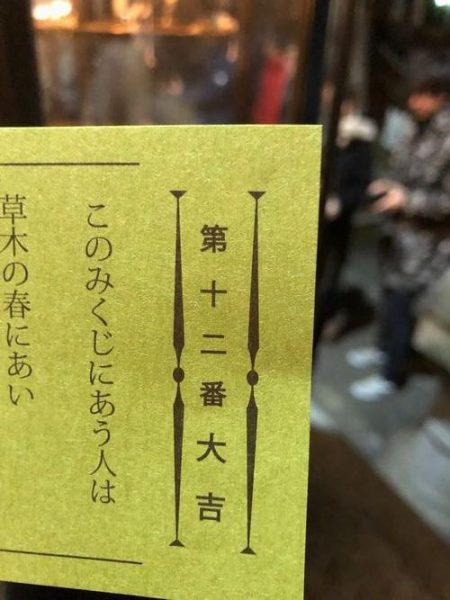 第十二番大吉
このみくじにあう人は
草木の春にあい